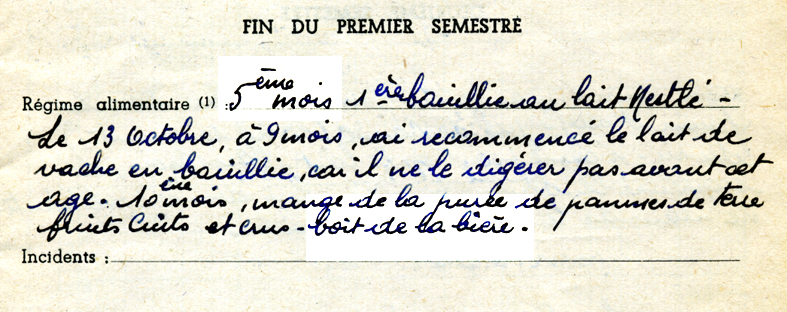 FIN DU PREMIER SEMESTRE
Régime alimentaire (1) : 5ème mois 1ère bouillie au lait Nestlé -
Le 13 Octobre, à 9 mois, ai recommencé le lait de
vache en bouillie, car il ne le digérer pas avant cet
age. 10ème mois, mange de la purée de pommes de terre
fruits cuits et crus - boit de la bière.
Incidents :